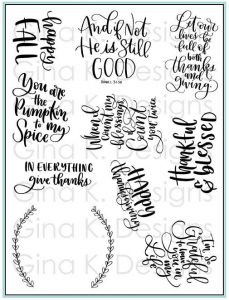 happy
FALL
And if Not
He is Still
GOOD
DANIEL 3:18
Let our
lives be
full of
both
thanks
and
giving.
You are
the
Pumpkin
to my
Spice
When
counting
blessings
I
Count
you twice
thankful
& blessed
IN EVERYTHING
give thanks
HAPPY
thanksgiving
I'm So
Grateful
to have
you in
my
life
Gina K. Designs
Gina K. Designs
Gina K. Designs
Gina K. Designs